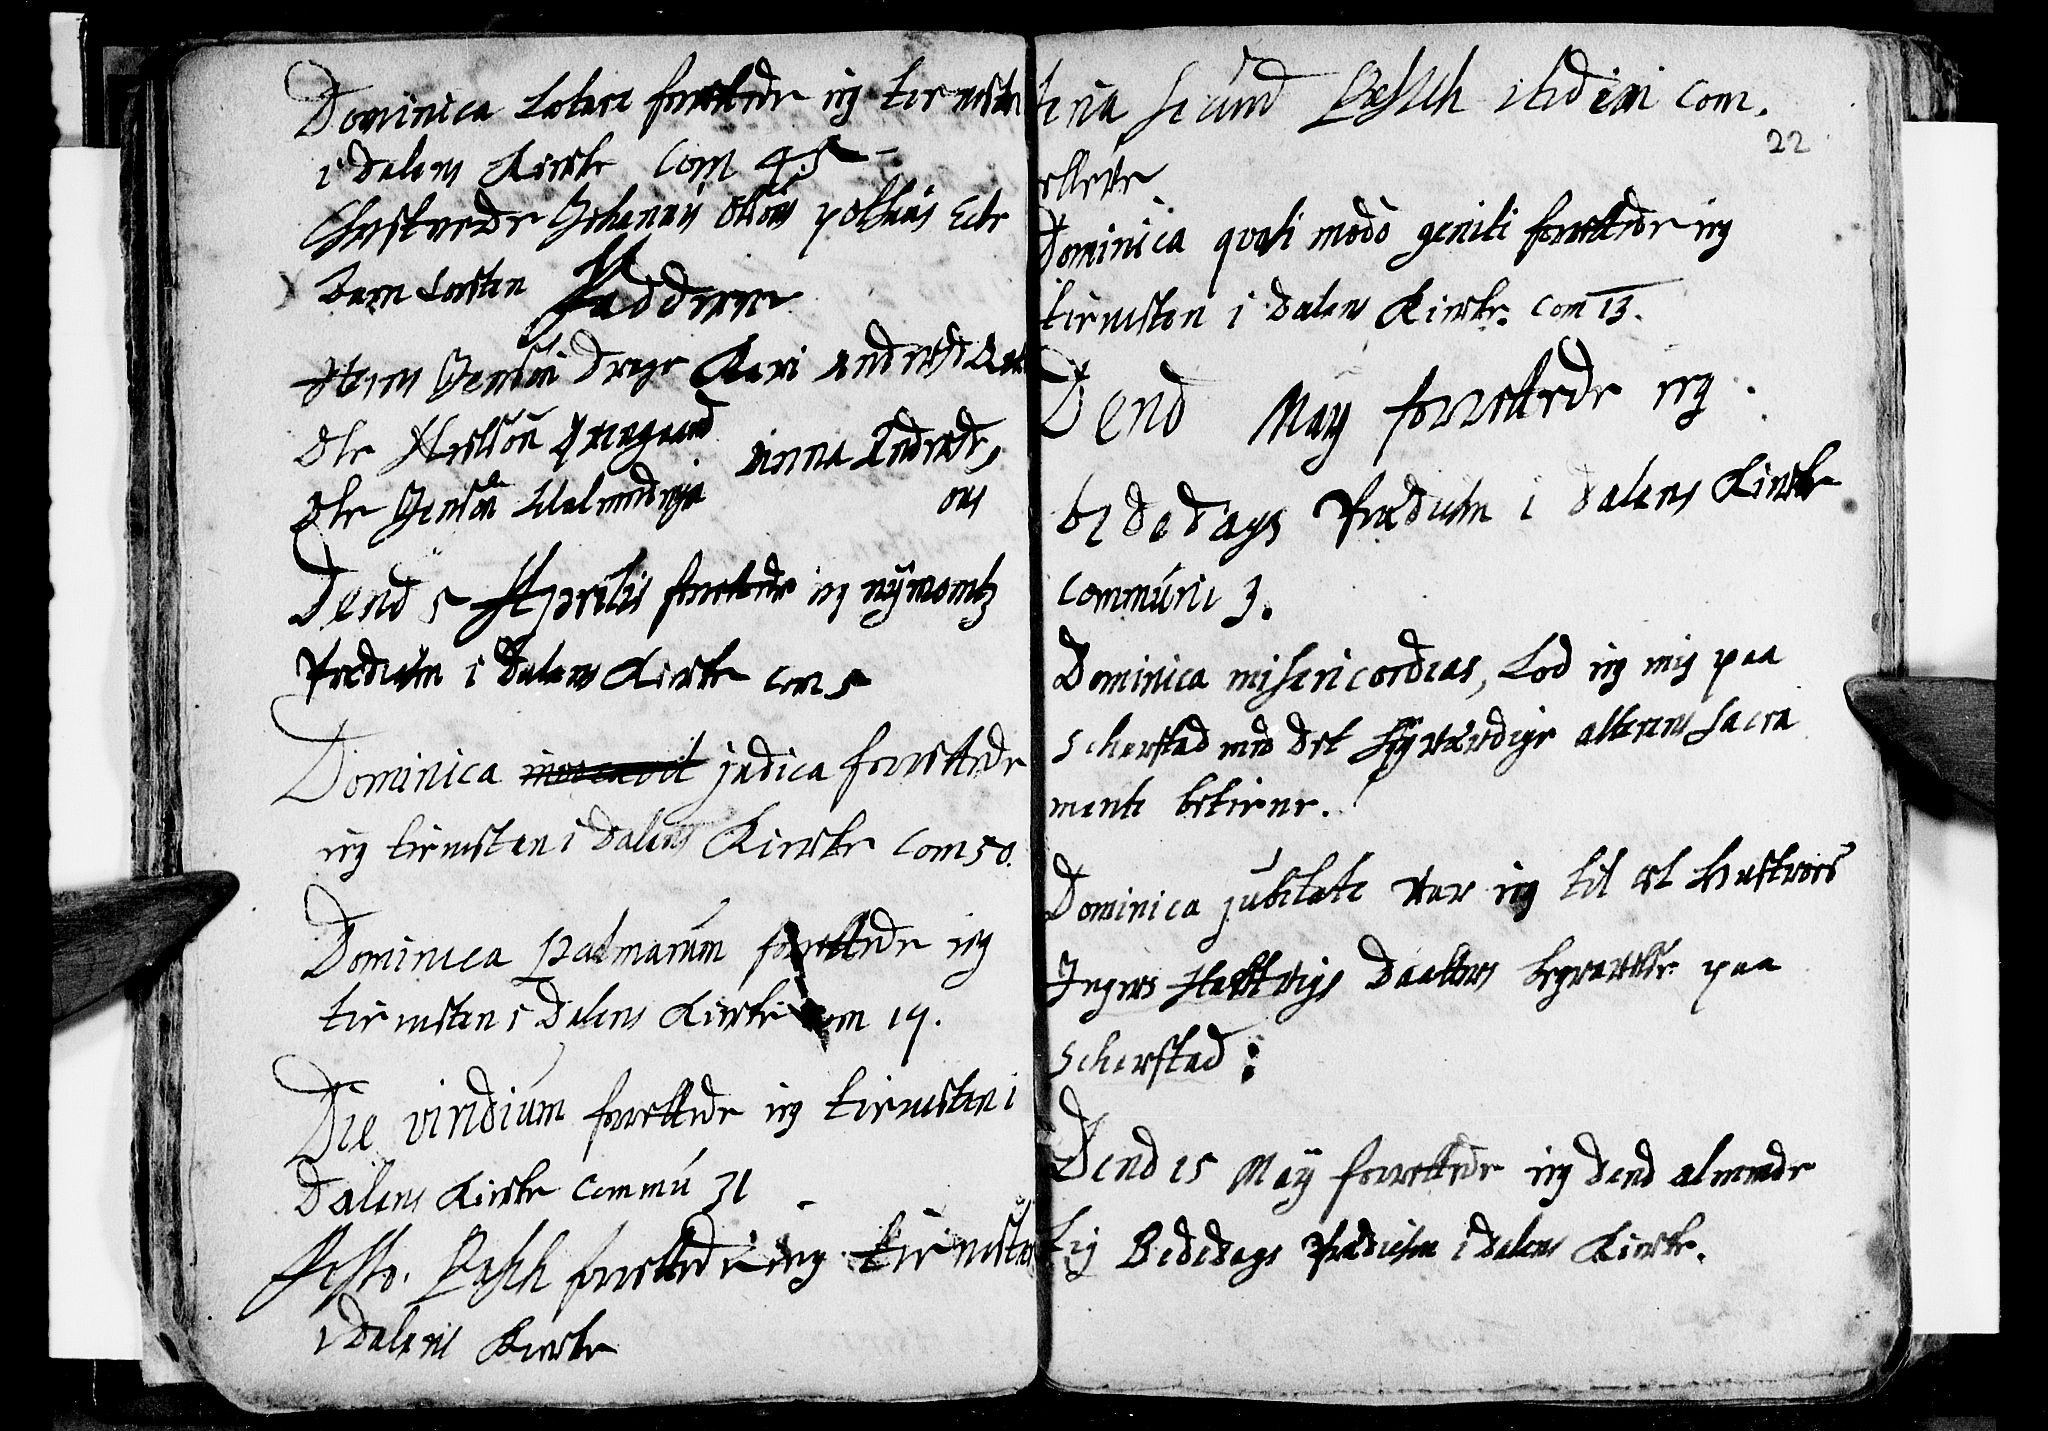 Dominica Letare forrettede ieg tienisten
i dalens Kircke Com 45
Christnede Johannis Olsøns polhuus Ecte
barn Torsten Fadderne
Steen Jensøn Drage Kari Anders
Ole Nielsøn Anna Anders
Ole Jensøn ons
Dend 5 Aprilis forrettede ieg nÿmonitz
Prædichen i Dalens Kircke com 5
Dominica invocavit judica forrettede
ieg tienisten i dalens Kircke Com 50.
Dominica palmarum forrettede ieg
tienisten i Dalens Kircke Com 19.
Die viridium forrettede ieg tienisten i
Dalens Kircke Commu 31
Festo. Pasch forrettede ieg tienisten
i Dalens Kircke
22
feria secund Pasch itidem com.
elleve
Dominica qvasi modo geniti forrettede ieg
tienisten i dalens Kircke. Com 13.
Dend May forrettede ieg
bededags Prædichen i dalens Kircke
Communi 3.
Dominica misericordias, Lod ieg mig paa
Scherstad med det høyværdige alterens Sacra
mente betiene.
Dominica jubilate var ieg til et hustroes
Ingers datters begravelse paa
Scherstad:
Dend 15 Maÿ forrettede ieg dend alminde
lig Bededags Prædichen i dalens Kircke.